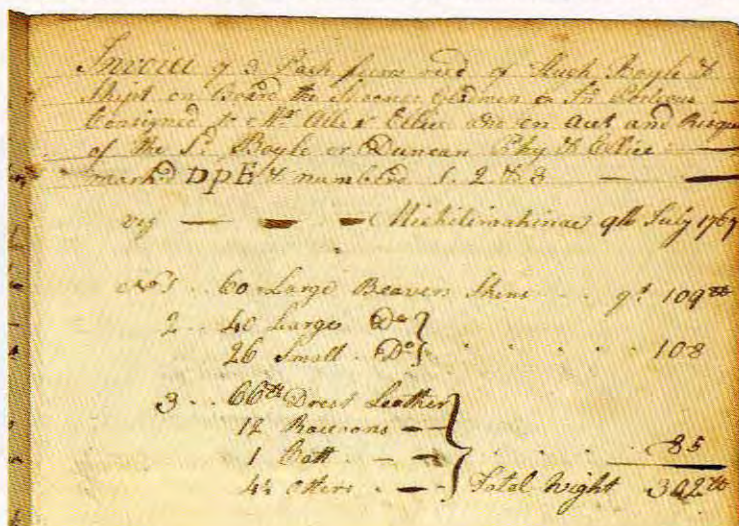 Invoice of 3 Pack furrs recd of Hugh Boyle &
Shipt on Board the Schooner Gladwin
Consigned to Mr Ellice and on Acct and Risque
of the Sd. Boyle or Duncan Phy & Ellice
markd DPE & numberd 1. 2. & 3
viz — — — Michilimakinac 9th July 1767
No 1 .. 60 Large Beavers Skins . . . qt 109 lb
2 .. 40 Large Do }
26 Small . Do } . . . . . 108
3 .. 66 lb Drest Leather
12 Raccoons —
1 Catt . — —
4 Otters . — } Total Wight 302 lb
85